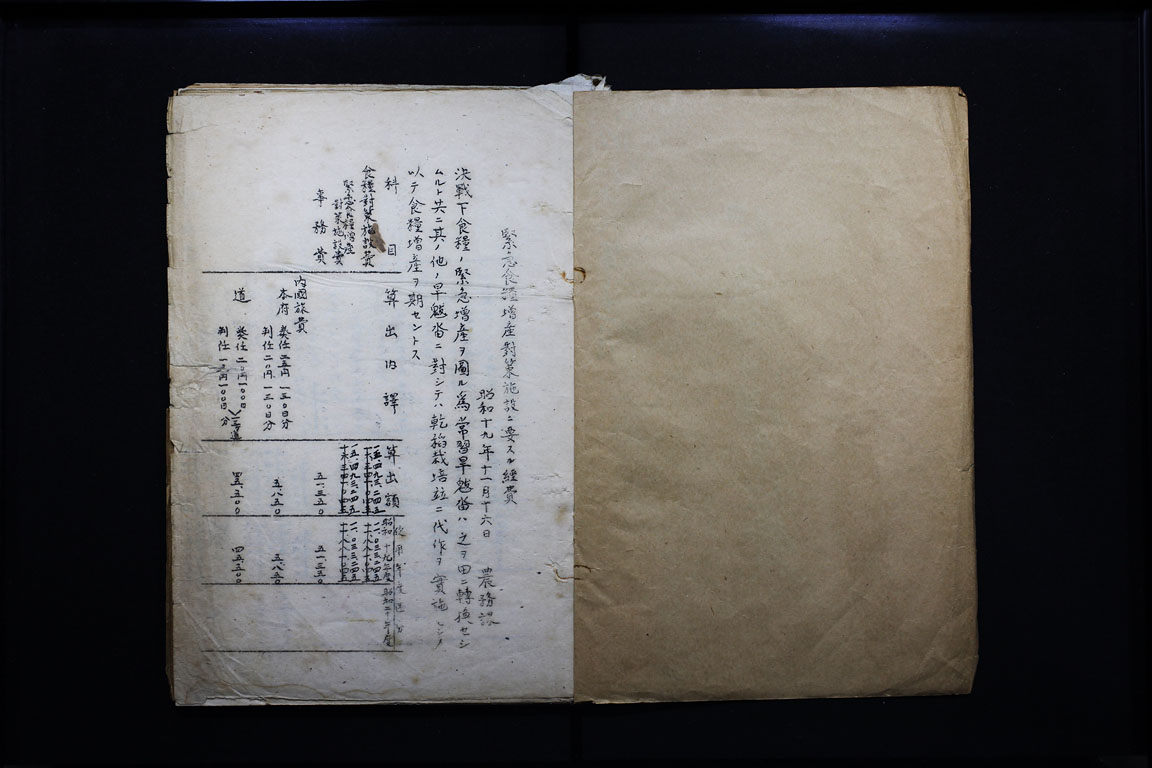 緊急食糧増産對策施設ニ要スル経費
昭和十九年十一月十六日 農務課
決戦下食糧ノ緊急増産ヲ圖ル為常習旱魃畓ハ之ヲ田ニ轉換セシ
ムルト共ニ其ノ他ノ旱魃畓ニ對シテハ乾稻栽培竝ニ代作ヲ實施セシメ
以テ食糧増産ヲ期セントス
科目 算出内譯 算出額 使用年度區分
昭和十九年度 昭和二十年度
食糧對策施設費
緊急食糧増産
對策施設費
事務費 五一、三五〇 五一、三五〇
内國旅費
本府 奏任 二五円 一三〇日分
判任 二〇円 一三〇日分 五、八五〇
道 奏任 二〇円 一〇〇日
判任 一五円 一〇〇日分 四五、五〇〇 四五、五〇〇